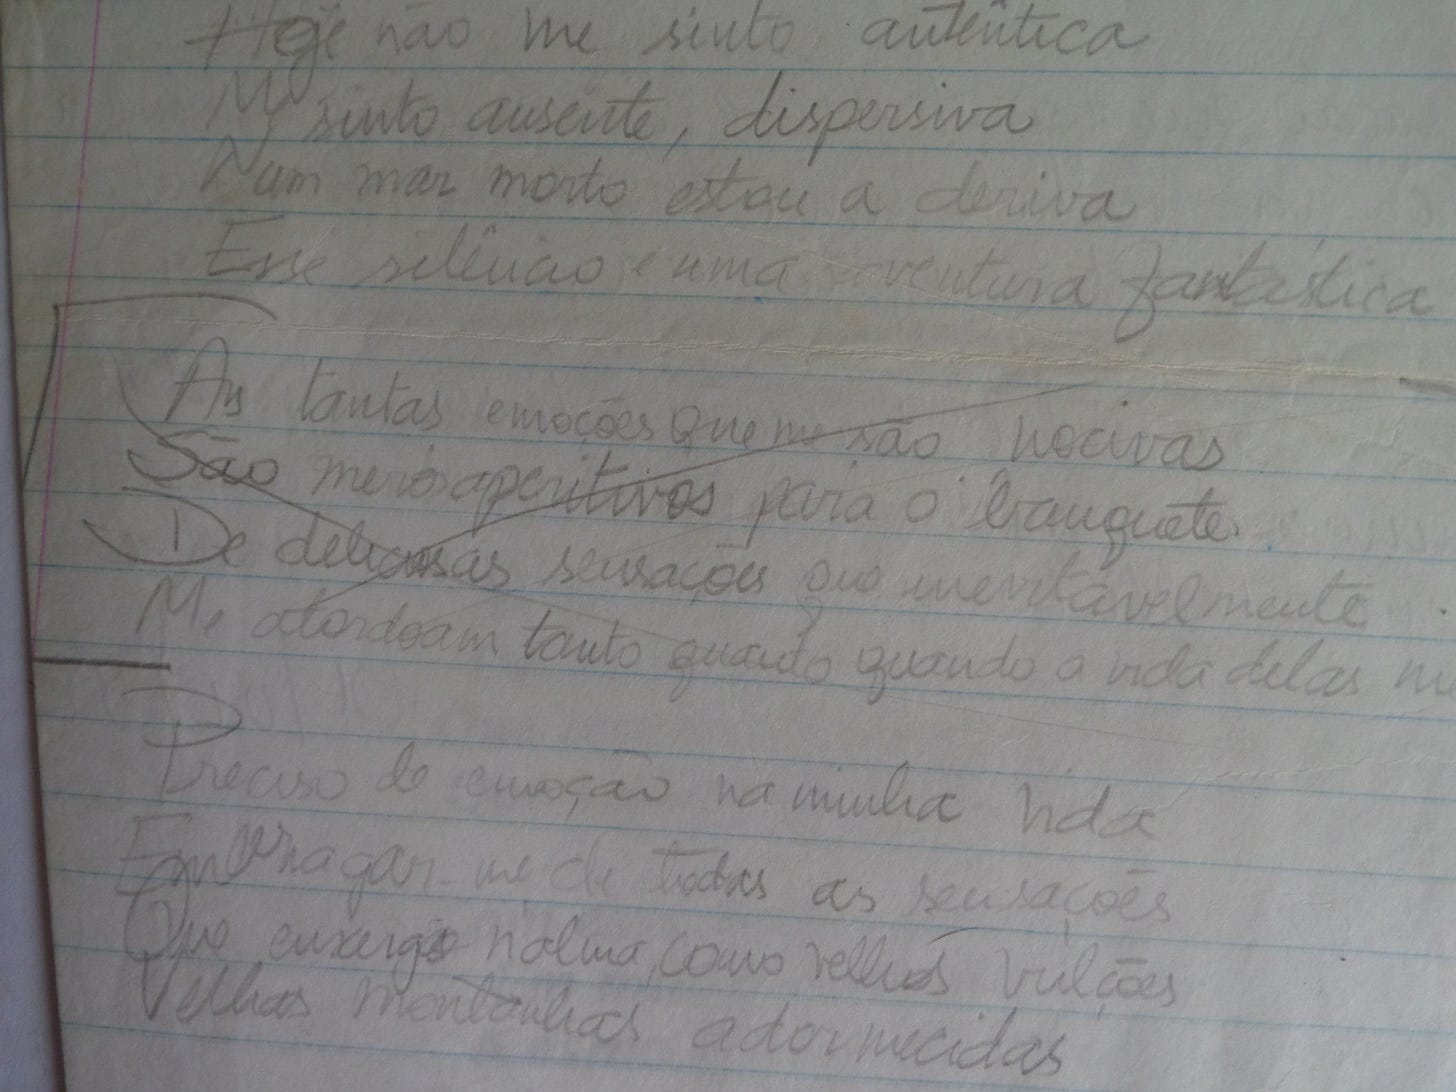 Hoje não me sinto autêntica
Me sinto ausente, dispersiva
Num mar morto estou a deriva
Esse silêncio é uma aventura fantástica
As tantas emoções que me são nocivas
São meros aperitivos para o banquete
De deliciosas sensações que inevitavelmente
Me atordoam tanto quanto quando a vida delas me
Preciso de emoção na minha vida
Embriagar-me de todas as sensações
Que enxergo n'alma, como velhos vulcões
Velhas montanhas adormecidas